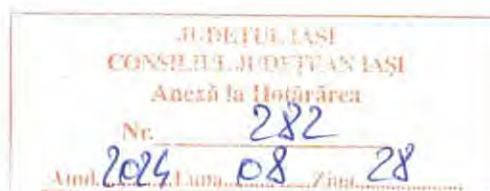 JUDEȚUL IAȘI
CONSILIUL JUDEȚEAN IAȘI
Anexă la Hotărârea
Nr. 282
Anul 2024 Luna 08 Ziua 28